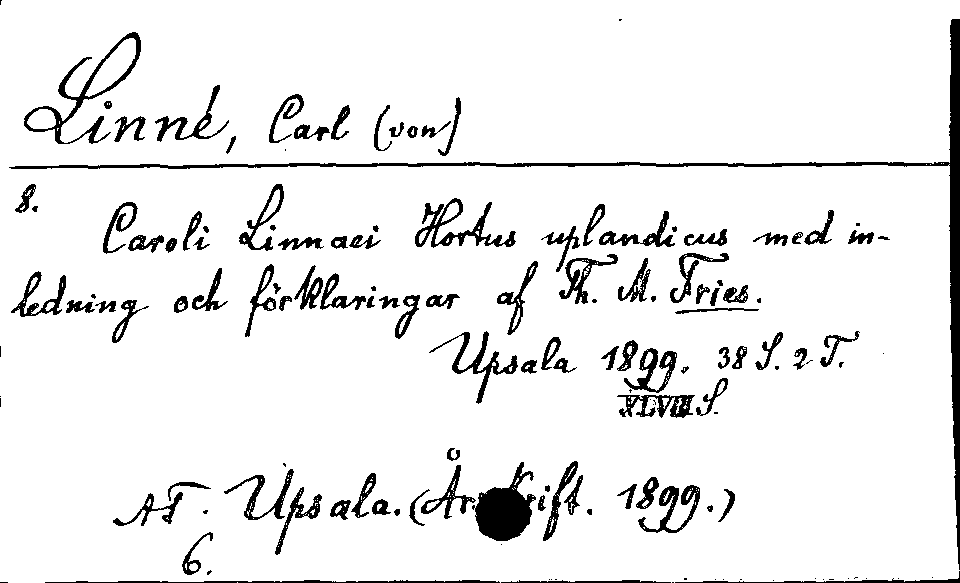 Linné, Carl (von)
8.
Caroli Linnaei Hortus uplandicus med in-
ledning och förklaringar af Th. M. Fries.
Upsala 1899. 38 S. 2 T.
XLVIII S.
Upsala. (Årsskrift. 1899.)
6.